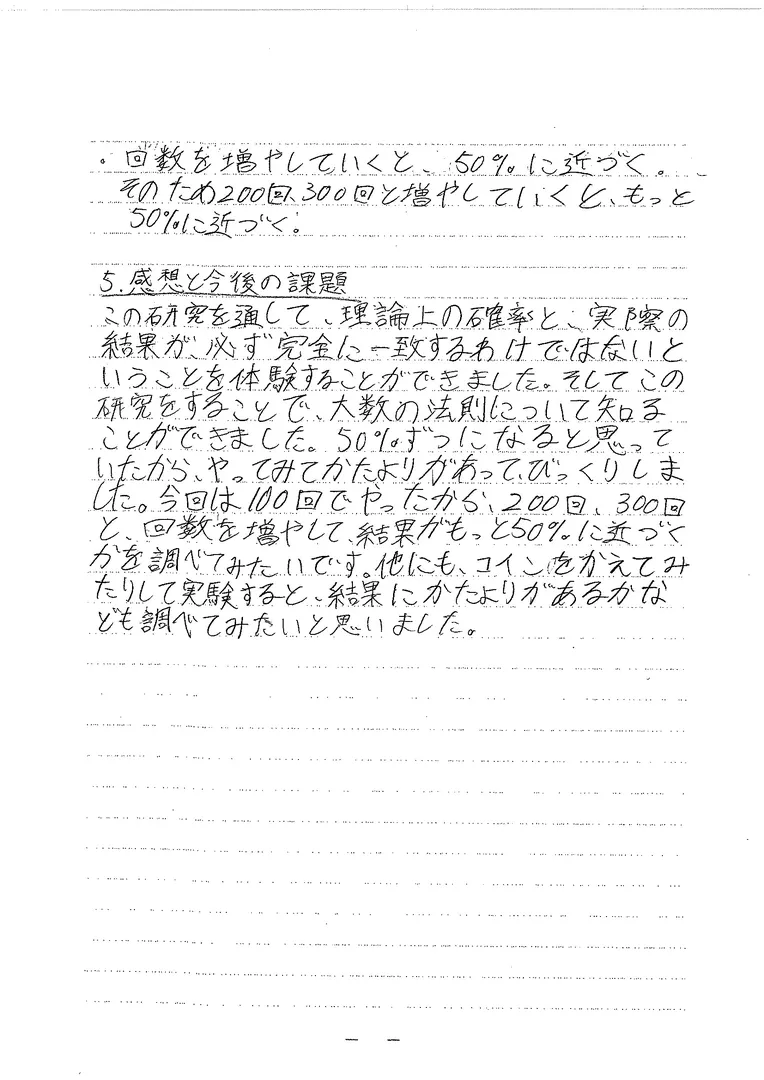 ・回数を増やしていくと、50%に近づく。
そのため200回、300回と増やしていくと、もっと
50%に近づく。
5.感想と今後の課題
この研究を通して、理論上の確率と、実際の
結果が、必ず完全に一致するわけではないと
いうことを体験することができました。そしてこの
研究をすることで、大数の法則について知る
ことができました。50%ずつになると思って
いたから、やってみてかたよりがあって、びっくりしま
した。今回は100回でやったから、200回、300回
と、回数を増やして、結果がもっと50%に近づく
かを調べてみたいです。他にも、コインをかえてみ
たりして実験すると、結果にかたよりがあるかな
ども調べてみたいと思いました。